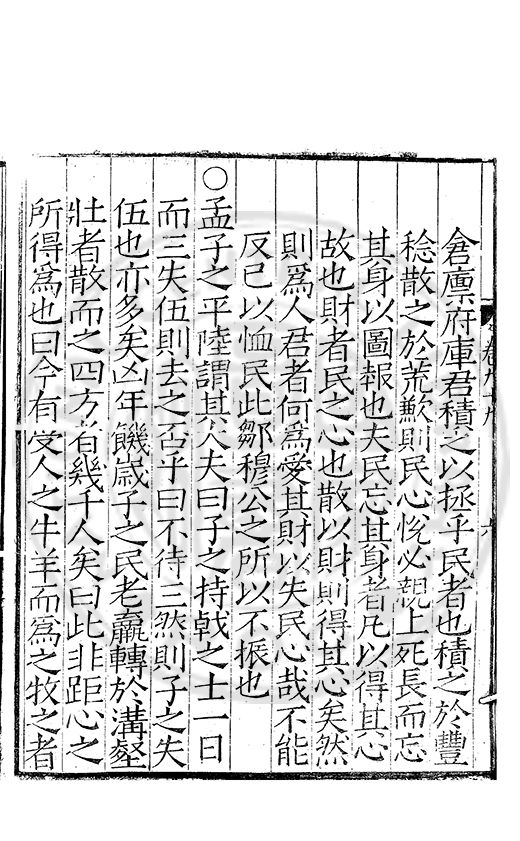 倉廪府庫君積之以拯乎民者也積之於豐
稔散之於荒歉則民心恱必親上死長而忘
其身以圖報也夫民忘其身者凡以得其心
故也財者民之心也散以財則得其心矣然
則爲人君者何爲愛其財以失民心哉不能
反已以恤民此鄒穆公之所以不振也
○孟子之平陸謂其大夫曰子之持戟之士一日
而三失伍則去之否乎曰不待三然則子之失
伍也亦多矣凶年饑歲子之民老羸轉於溝壑
壯者散而之四方者幾千人矣曰此非距心之
所得爲也曰今有受人之牛羊而爲之牧之者